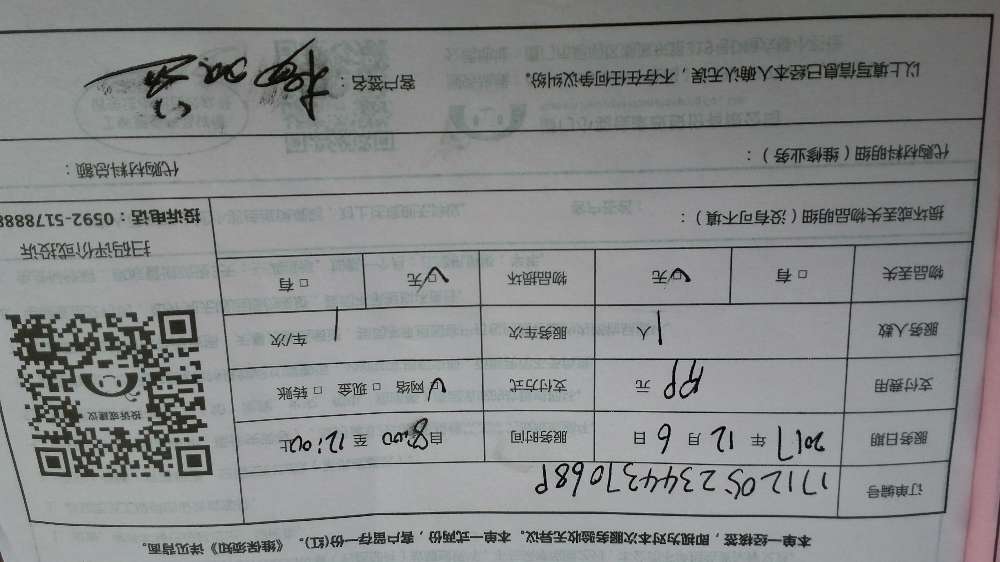 本单一经接签，即视为对本次服务验收无异议。本单一式两份，客户留存一份(红)。《维保须知》详见背面。
订单编号 1712052344370689
服务日期 2017 年 12 月 6 日 服务时间 自 8:00 至 12:00 止
支付费用 99 元 支付方式 ☑ 网络 □ 现金 □ 转账
服务人数 1 人 服务车次 1 车/次
物品丢失 □ 有 ☑ 无 物品损坏 ☑ 无 □ 有
投诉或建议
扫码评价或投诉
投诉电话：0592-5178888
损坏或丢失物品明细（没有可不填）：
代购材料明细（维修业务）： 代购材料总额：
以上填写信息已经本人确认无误，不存在任何争议纠纷。 客户签名：